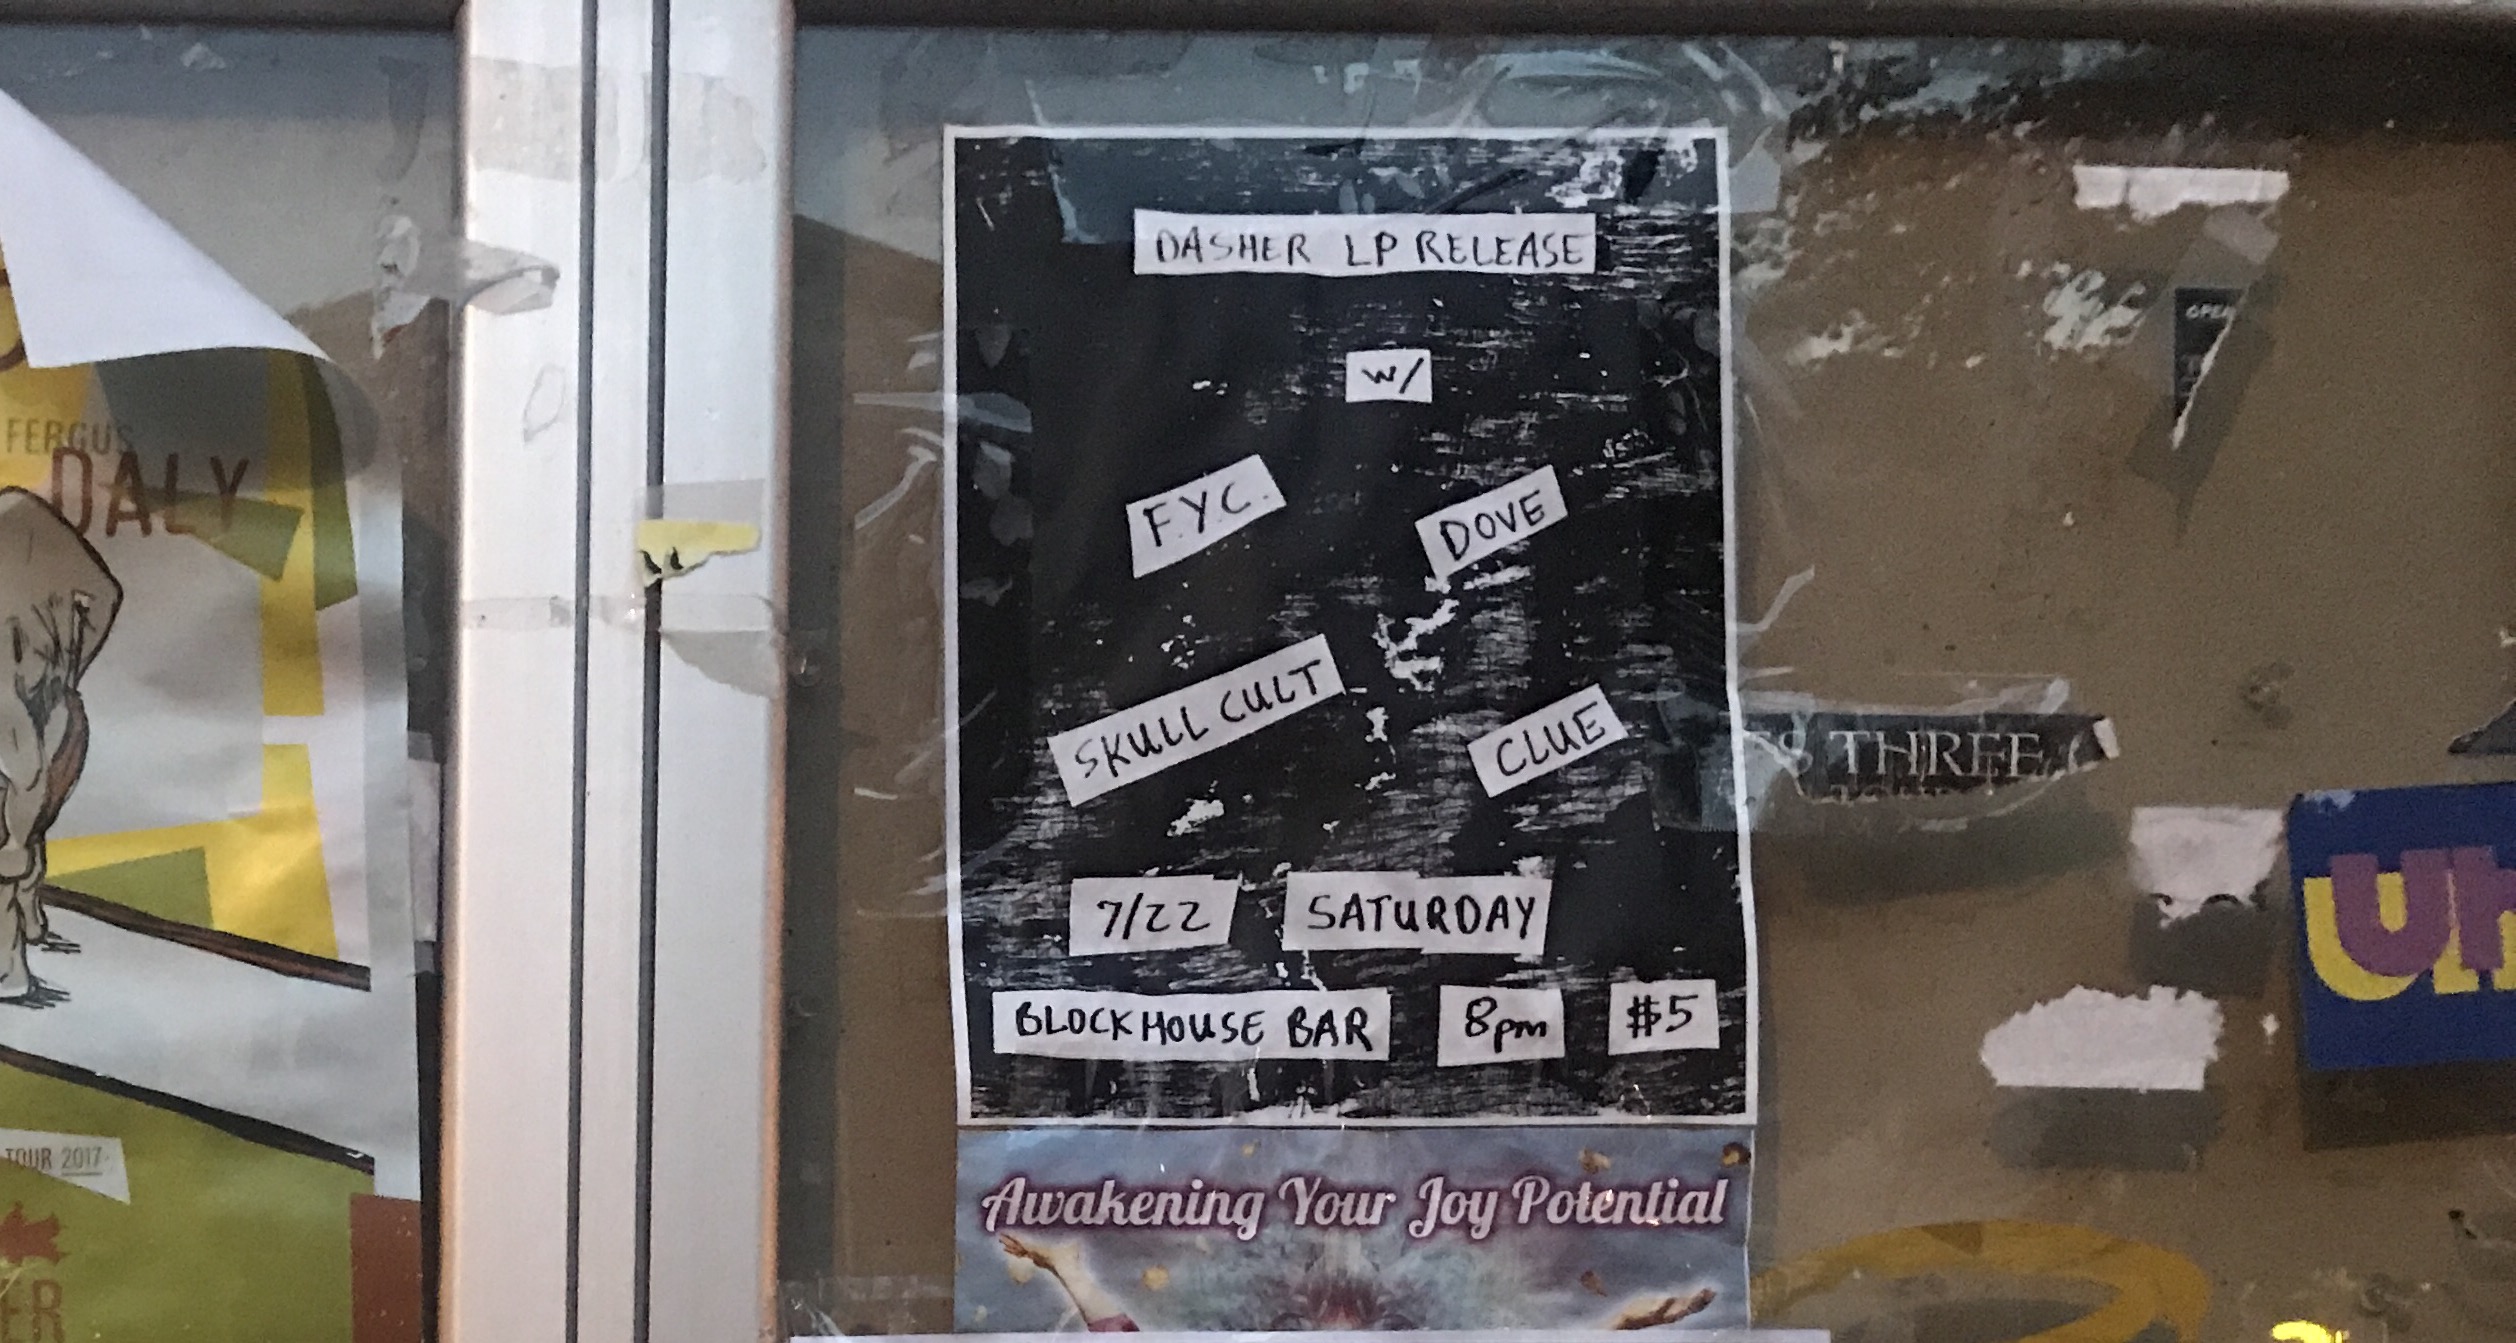 FERGUS
DALY
TOUR 2017
ER
DASHER LP RELEASE
W/
F.Y.C. DOVE
SKULL CULT CLUE
7/22 SATURDAY
BLOCKHOUSE BAR 8pm $5
Awakening Your Joy Potential
OPEN
S THREE
Uh